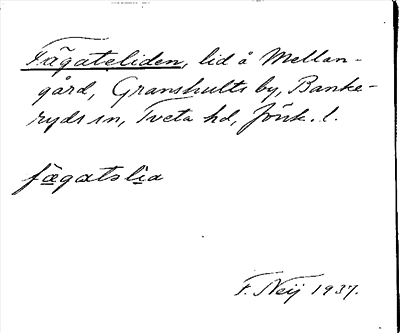 Fägatsliden, lid å Mellan-
gård, Granshults by, Banke-
ryds sn, Tveta hd, Jönk. l.
fägatslia
F. Neij 1937.